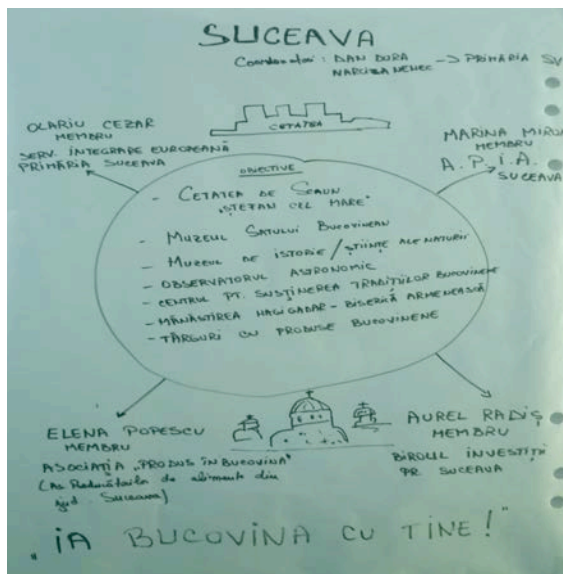 SUCEAVA
Coordonatori: DAN DURA → PRIMĂRIA SV
NARCIZA NENEC
OLARIU CEZAR
MEMBRU
SERV. INTEGRARE EUROPEANĂ
PRIMĂRIA SUCEAVA
CETATEA
MARINA MIRU
MEMBRU
A.P.I.A.
SUCEAVA
OBIECTIVE
- CETATEA DE SCAUN
"ȘTEFAN CEL MARE"
- MUZEUL SATULUI BUCOVINEAN
- MUZEUL DE ISTORIE / ȘTIINȚE ALE NATURII
- OBSERVATORUL ASTRONOMIC
- CENTRUL PT. SUSȚINEREA TRADIȚIILOR BUCOVINENE
- MĂNĂSTIREA HAGIGADAR - BISERICĂ ARMENEASCĂ
- TÂRGURI CU PRODUSE BUCOVINENE
ELENA POPESCU
MEMBRU
ASOCIAȚIA „PRODUS ÎN BUCOVINA"
(As. Producătorilor de alimente din
jud. Suceava)
AUREL RADIȘ
MEMBRU
BIROUL INVESTIȚII
PR. SUCEAVA
„IA BUCOVINA CU TINE!"